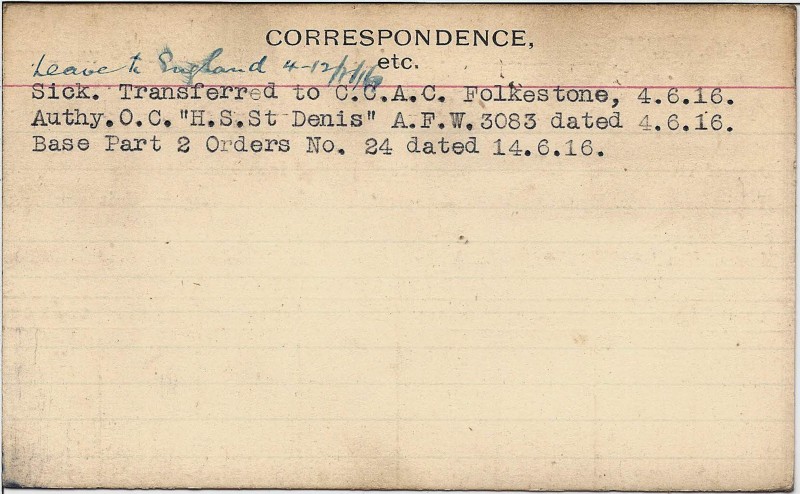 CORRESPONDENCE,
etc.
Leave to England 4-12/1/16
Sick. Transferred to C.C.A.C. Folkestone, 4.6.16.
Authy.O.C."H.S.St Denis" A.F.W.3083 dated 4.6.16.
Base Part 2 Orders No. 24 dated 14.6.16.